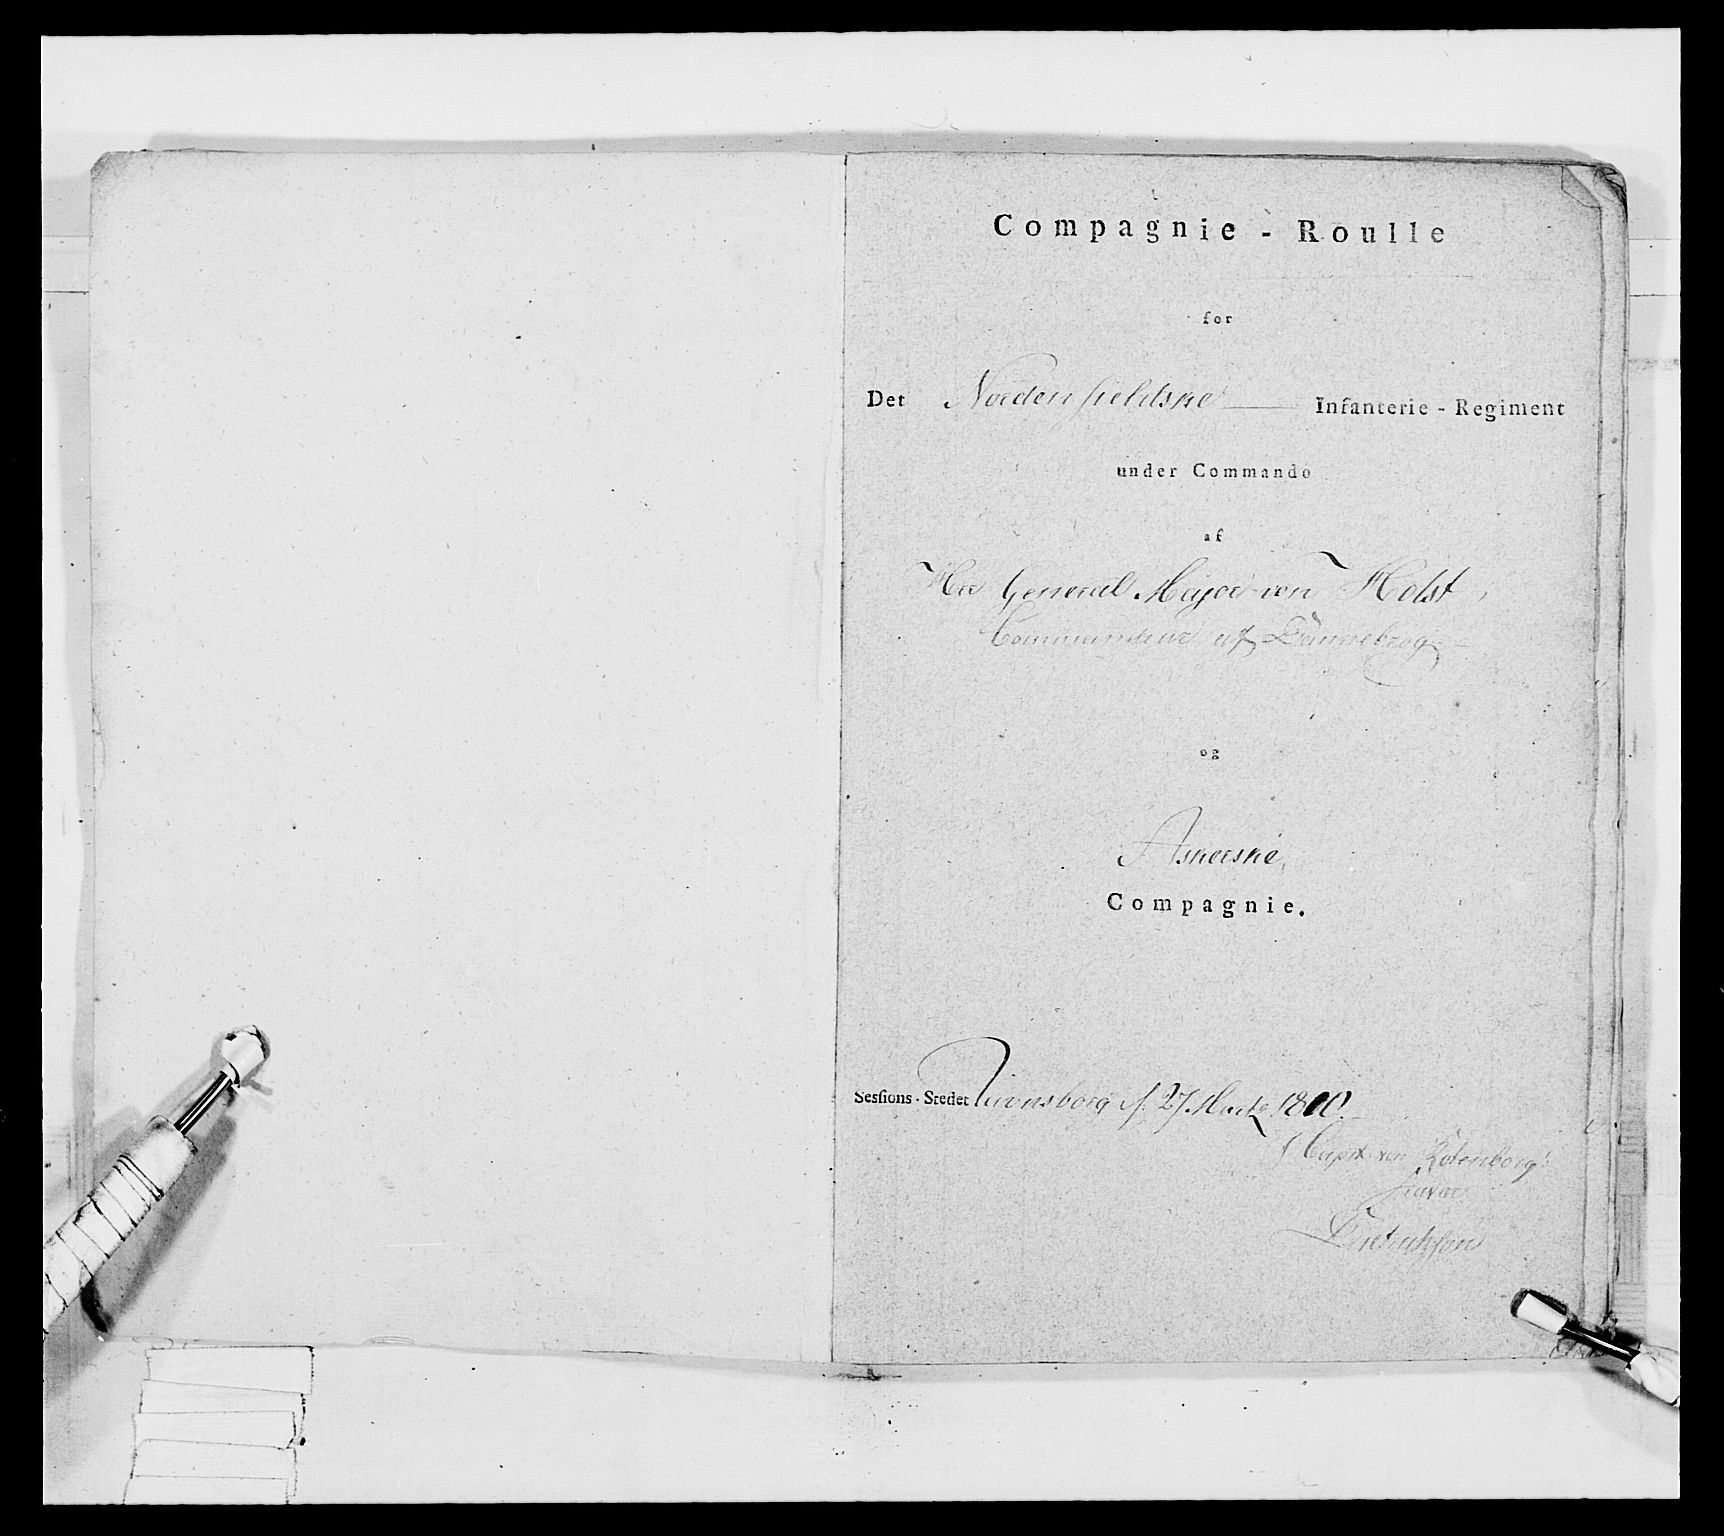 Compagnie - Roulle
for
Det Nordenfieldske Infanterie - Regiment
under Commando
af
Hrr General Major von Holst,
Commandeur af Dannebrog
og
Askerske
Compagnie.
Sesſions-Stedet d. 27 Martz 1800.
Capit. von Rotenborgs
fravær